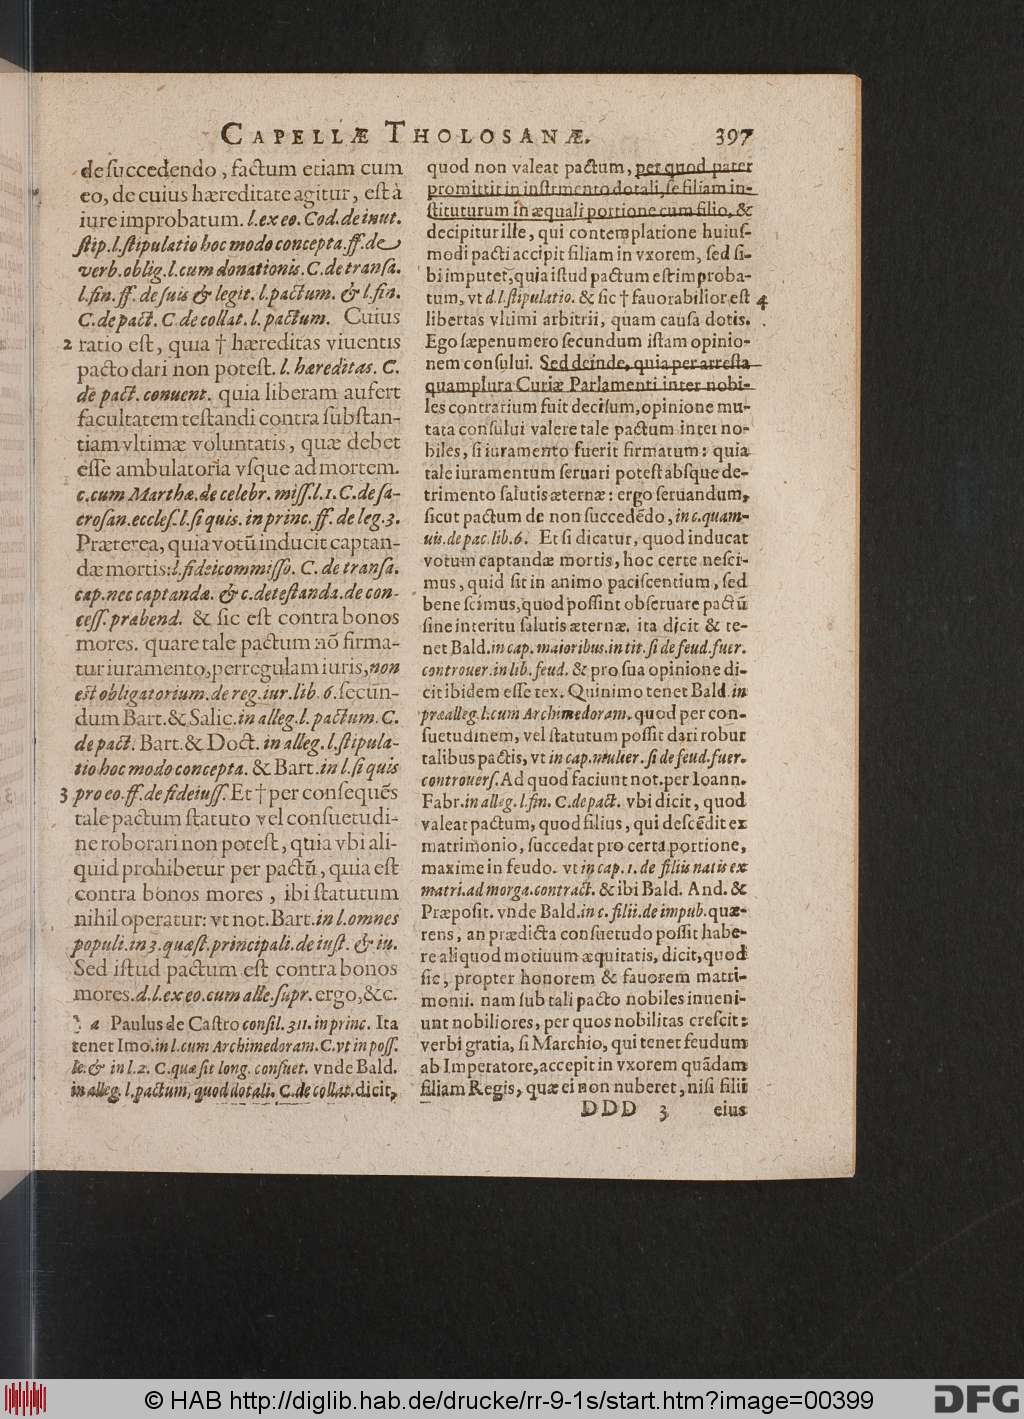 CAPELLÆ THOLOSANÆ. 397
de ſuccedendo, factum etiam cum
eo, de cuius hæreditate agitur, eſt à
iure improbatum. l. ex eo. Cod. de inut.
ſtip. l. ſtipulatio hoc modo concepta. ff. de
verb. oblig. l. cum donationis. C. de tranſa.
l. fin. ff. de ſuis & legit. l. pactum. & l. fin.
C. de pact. C. de collat. l. pactum. Cuius
2 ratio eſt, quia † hæreditas viuentis
pacto dari non poteſt. l. hæreditas. C.
de pact. conuent. quia liberam aufert
facultatem teſtandi contra ſubſtan-
tiam vltimæ voluntatis, quæ debet
eſſe ambulatoria vſque ad mortem.
c. cum Marthæ. de celebr. miſſ. l. 1. C. de ſa-
croſan. eccleſ. l. ſi quis. in princ. ff. de leg. 3.
Præterea, quia votū inducit captan-
dæ mortis: l. fideicommiſſo. C. de tranſa.
cap. nec captandæ. & c. deteſtanda. de con-
ceſſ. prabend. & ſic eſt contra bonos
mores. quare tale pactum nō firma-
tur iuramento, per regulam iuris, non
eſt obligatorium. de reg. iur. lib. 6. ſecun-
dum Bart. & Salic. in alleg. l. pactum. C.
de pact. Bart. & Doct. in alleg. l. ſtipula-
tio hoc modo concepta. & Bart. in l. ſi quis
3 pro eo. ff. de fideiuſſ. Et † per conſequēs
tale pactum ſtatuto vel conſuetudi-
ne roborari non poteſt, quia vbi ali-
quid prohibetur per pactū, quia eſt
contra bonos mores, ibi ſtatutum
nihil operatur: vt not. Bart. in l. omnes
populi. in 3. quæſt. principali. de iuſt. & iu.
Sed iſtud pactum eſt contra bonos
mores. d. l. ex eo. cum alle. ſupr. ergo, &c.
a Paulus de Caſtro conſil. 311. in princ. Ita
tenet Imo. in l. cum Archimedoram. C. vt in poſſ.
le. & in l. 2. C. quæ ſit long. conſuet. vnde Bald.
in alleg. l. pactum, quod dotali. C. de collat. dicit,
quod non valeat pactum, per quod pater
promittit in inſtrmento dotali, ſe filiam in-
ſtituturum in æquali portione cum filio, &
decipitur ille, qui contemplatione huiuſ-
modi pacti accipit filiam in vxorem, ſed ſi-
bi imputet, quia iſtud pactum eſt improba-
tum, vt d. l. ſtipulatio. & ſic † fauorabilior eſt 4
libertas vltimi arbitrii, quam cauſa dotis.
Ego ſæpenumero ſecundum iſtam opinio-
nem conſului. Sed deinde, quia per arreſta
quamplura Curiæ Parlamenti inter nobi-
les contrarium fuit deciſum, opinione mu-
tata conſului valere tale pactum inter no-
biles, ſi iuramento fuerit firmatum: quia
tale iuramentum ſeruari poteſt abſque de-
trimento ſalutis æternæ: ergo ſeruandum,
ſicut pactum de non ſuccedēdo, in c. quam-
uis. de pac. lib. 6. Et ſi dicatur, quod inducat
votum captandæ mortis, hoc certe neſci-
mus, quid ſit in animo paciſcentium, ſed
bene ſcimus, quod poſſint obſeruare pactū
ſine interitu ſalutis æternæ. ita dicit & te-
net Bald. in cap. maioribus. in tit. ſi de feud. fuer.
controuer. in lib. feud. & pro ſua opinione di-
cit ibidem eſſe tex. Quinimo tenet Bald. in
præalleg. l. cum Archimedoram. quod per con-
ſuetudinem, vel ſtatutum poſſit dari robur
talibus pactis, vt in cap. mulier. ſi de feud. fuer.
controuerſ. Ad quod faciunt not. per Ioann.
Fabr. in alleg. l. fin. C. de pact. vbi dicit, quod
valeat pactum, quod filius, qui deſcēdit ex
matrimonio, ſuccedat pro certa portione,
maxime in feudo. vt in cap. 1. de filiis natis ex
matri. ad morga. contract. & ibi Bald. And. &
Præpoſit. vnde Bald. in c. filii. de impub. quæ-
rens, an prædicta conſuetudo poſſit habe-
re aliquod motiuum æquitatis, dicit, quod
ſic, propter honorem & fauorem matri-
monii. nam ſub tali pacto nobiles inueni-
unt nobiliores, per quos nobilitas creſcit:
verbi gratia, ſi Marchio, qui tenet feudum
ab Imperatore, accepit in vxorem quādam
filiam Regis, quæ ei non nuberet, niſi filii
DDD 3 eius
© HAB http://diglib.hab.de/drucke/rr-9-1s/start.htm?image=00399
DFG